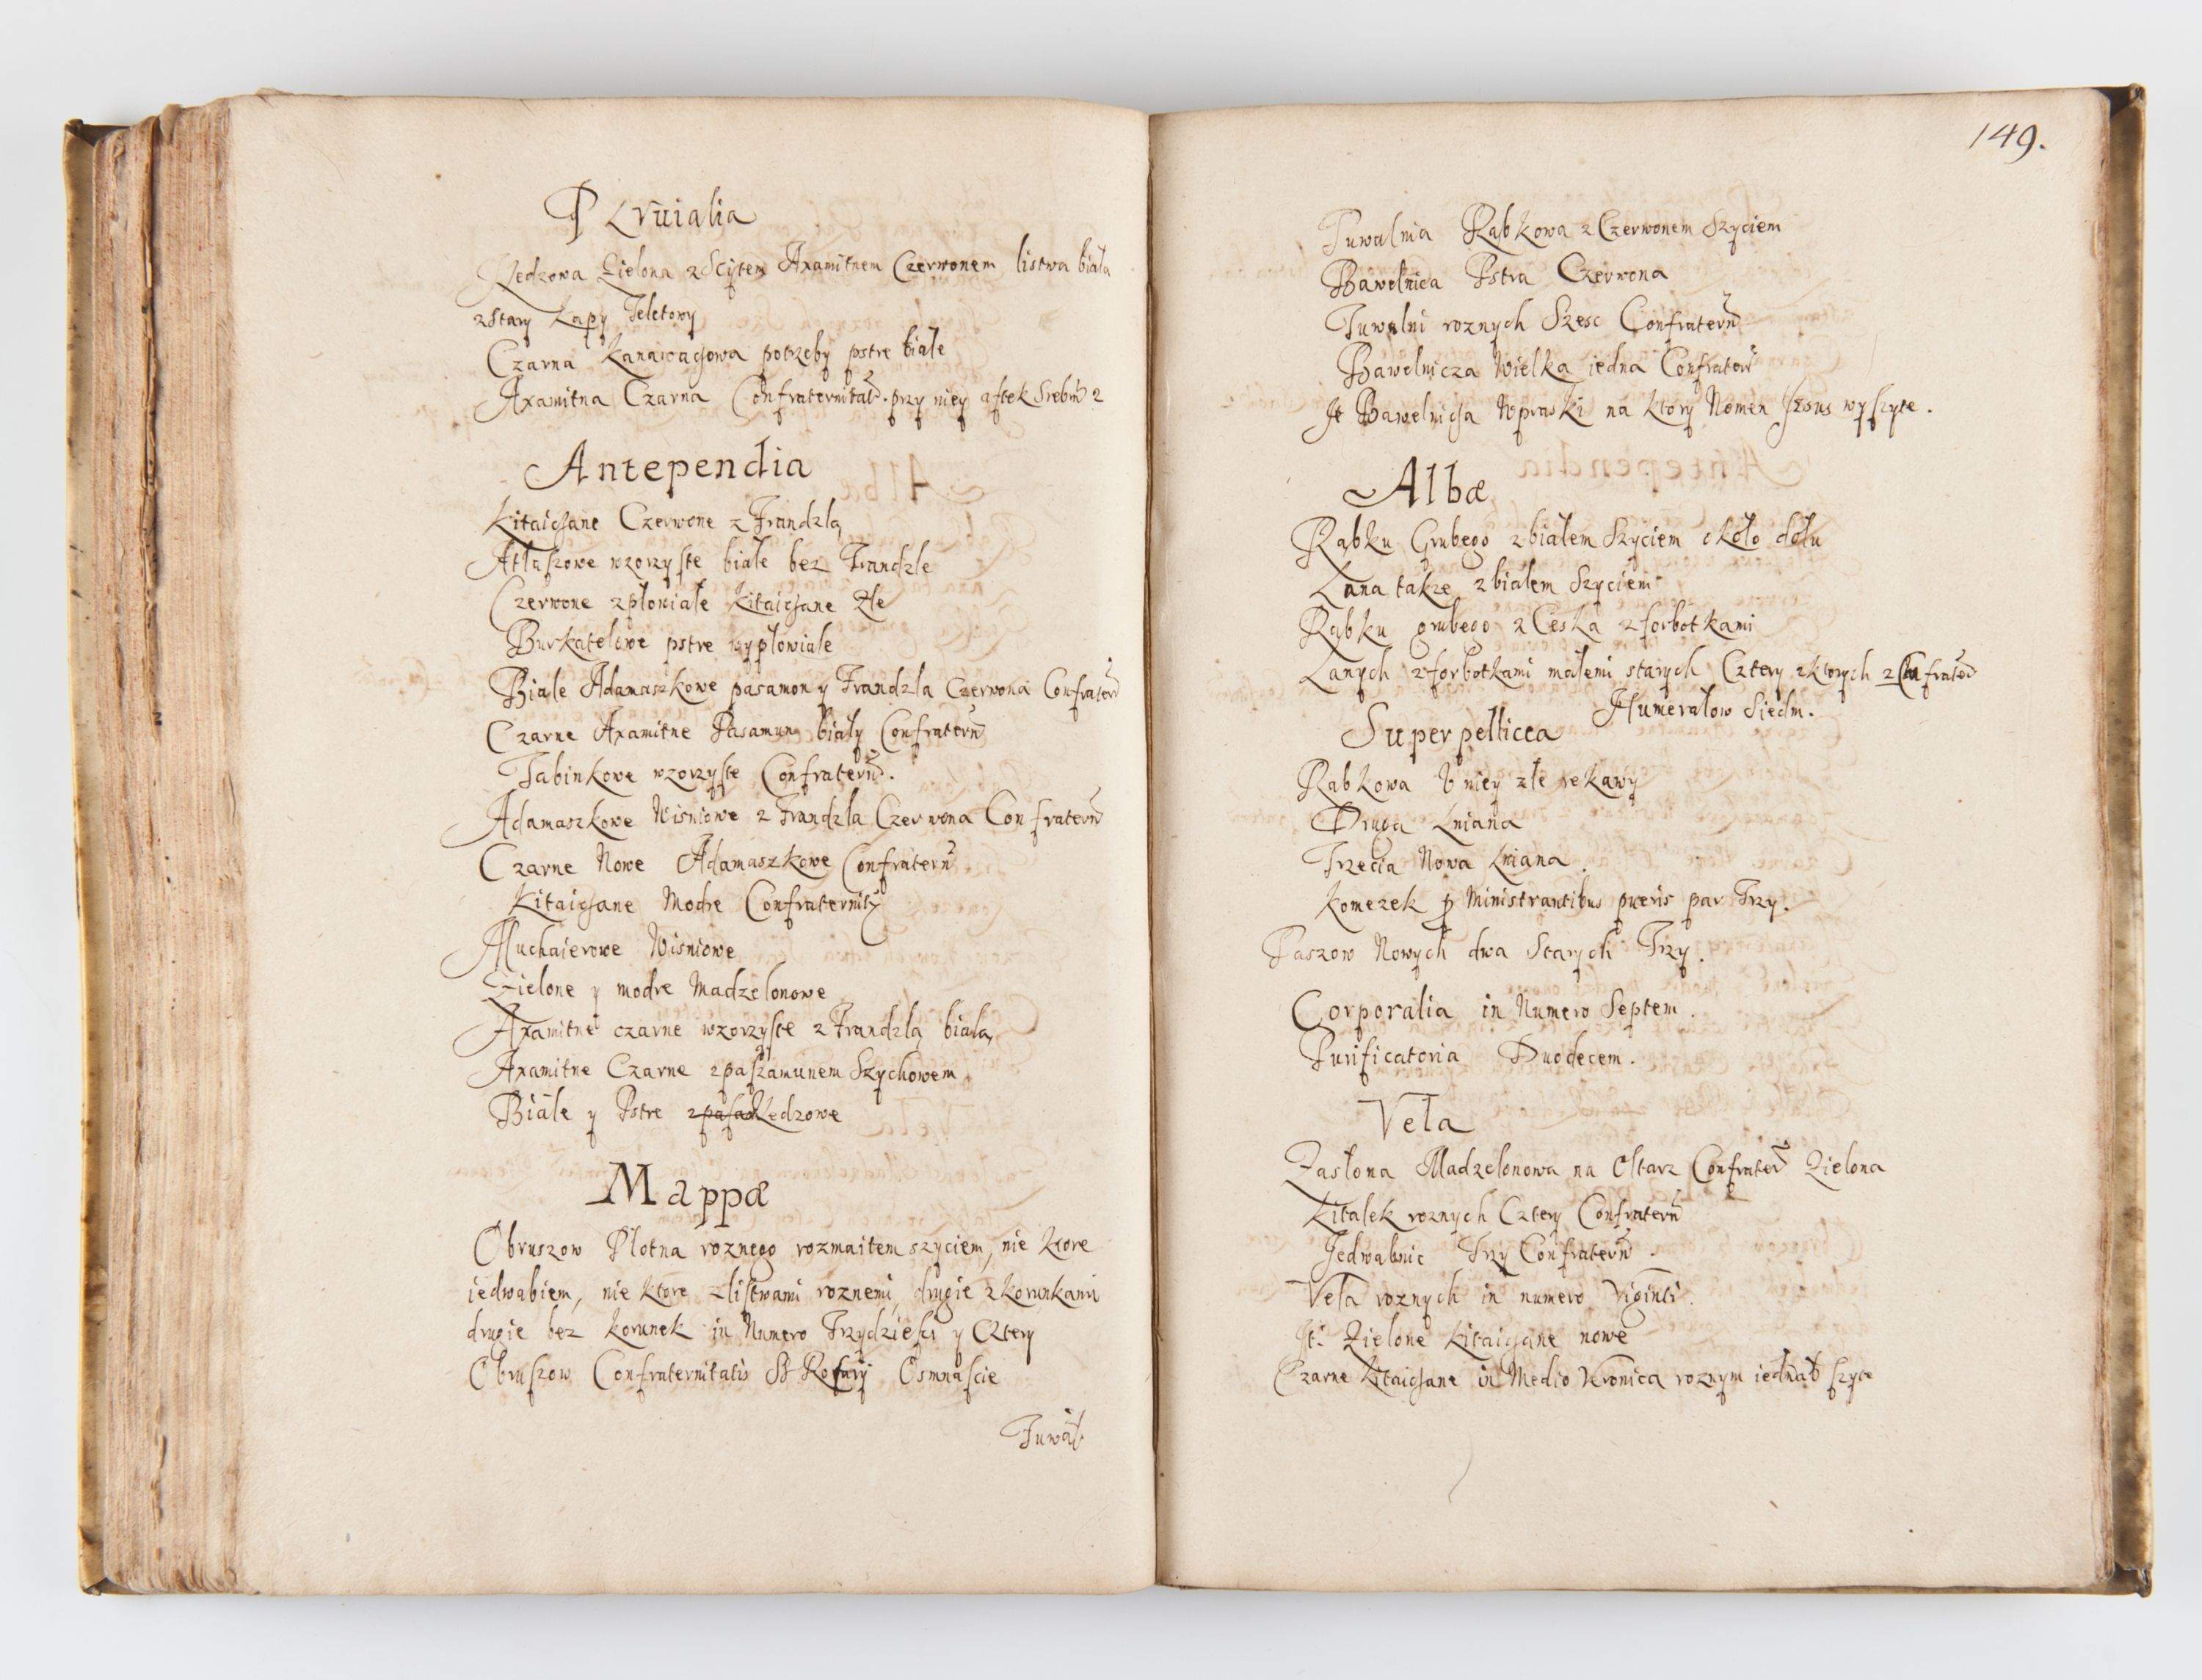 Pluuialia
Kedzowa Zielona z Scitem Axamitnem Czerwonem listwa biała
z Stary kapy Teletowy
Czarna kanawacyowa potrzeby pstre białe
Axamitna Czarna Confraternitat. przy niey aftek Srebrn 2
Antependia
Kitaiczane Czerwone z Frandzlą
Atłaszowe wzorzyste białe bez Frandzle
Czerwone zpłowiałe kitaiczane Złe
Burkatelowe pstre wypłowiałe
Białe Adamaszkowe pasamon y Frandzla Czerwona Confratern
Czarne Axamitne Pasamun biały Confratern
Tabinkowe wzorzyste Confratern.
Adamaszkowe Wisniowe z Frandzla Czerwona Confratern
Czarne Nowe Adamaszkowe Confratern
Kitaiczane Modre Confraternity
Muchaierowe Wisniowe
Zielone y modre Madzelonowe
Axamitne czarne wzorzyste z Frandzlą białą
Axamitne Czarne z paszamunem Szychowem
Białe y Pstre Kedzowe
Mappæ
Obruszow Płotna roznego rozmaitem szyciem, nie ktore
iedwabiem, nie ktore z listwami roznemi, drugie z korunkami
drugie bez korunek in Numero Trzydziesci y Cztery
Obruszow Confraternitatis SS Rosarÿ Osmnascie
Tuwal
149.
Tuwalnia Rąbkowa z Czerwonem Szyciem
Bawełnica Pstra Czerwona
Tuwalni roznych Szesc Confratern
Bawełnicza Wielka iedna Confratern
It Bawełnicza Wpraski na ktory Nomen Jesus wyszyte.
Albæ
Rąbku Grubego z białem Szyciem około dołu
Lana takze z białem Szyciem
Rąbku grubego z Ceska z forbotkami
Lanych z forbotkami małemi starych Cztery z ktorych 2 Confratern
Humerałow Siedm.
Superpellicea
Rabkowa V niey złe rekawy
Druga Lniana
Trzecia Nowa Lniana.
Komezek p Ministrantibus pueris par Trzy.
Paszow Nowych dwa Starych Trzy.
Corporalia in Numero Septem.
Purificatoria Duodecem.
Vela
Zasłona Madzelonowa na Ołtarz Confratern Zielona
Kitalek roznych Cztery Confratern
Jedwabnic Trzy Confratern.
Vela roznych in numero Viginti.
It. Zielone kitaiczane nowe
Czarne kitaiczane in Medio Veronica roznym iedwab szyte